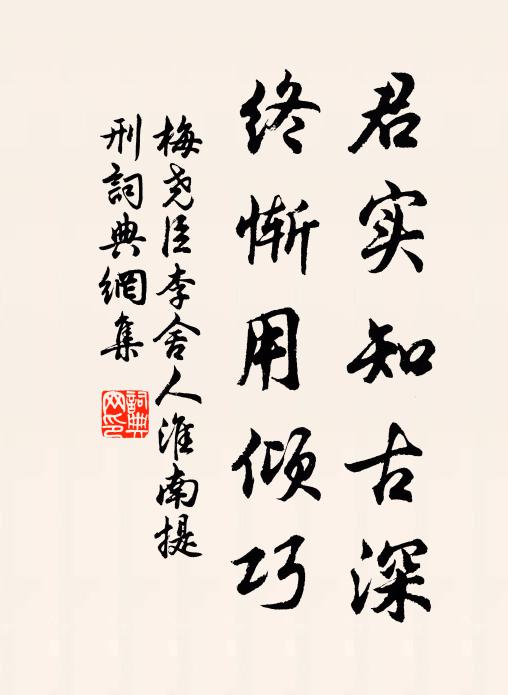 君实知古深
终惭用倾巧
梅尧臣李舍人淮南提
刑詞典網集
詞典网印